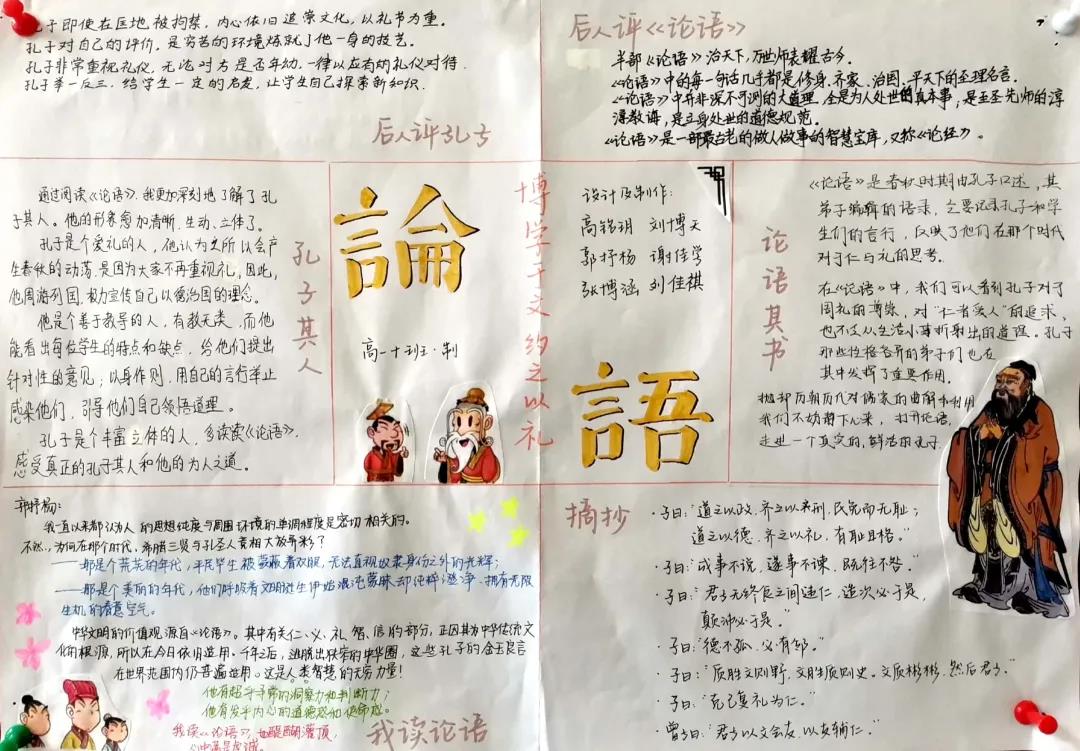 孔子即使在匡地被拘禁，内心依旧追崇文化，以礼节为重。
孔子对自己的评价，是穷苦的环境炼就了他一身的技艺。
孔子非常重视礼仪，无论对方是否年幼，一律以应有的礼仪对待。
孔子举一反三，给学生一定的启发，让学生自己探索新知识.
后人评孔子
后人评《论语》
半部《论语》治天下，万世师表耀古今.
《论语》中的每一句话几乎都是修身、齐家、治国、平天下的至理名言.
《论语》中并非深不可测的大道理，全是为人处世的真本事，是至圣先师的谆
谆教诲，是立身处世的道德规范.
《论语》是一部最古老的做人做事的智慧宝库，又称《论经》。
通过阅读《论语》，我更加深刻地了解了孔
子其人。他的形象愈加清晰、生动、立体了。
孔子是个爱礼的人，他认为之所以会产
生春秋的动荡，是因为大家不再重视礼，因此，
他周游列国，极力宣传自己以德治国的理念。
他是个善于教导的人，有教无类，而他
能看出每位学生的特点和缺点，给他们提出
针对性的意见；以身作则，用自己的言行举止
感染他们，引得他们自己领悟道理。
孔子是个丰富立体的人，多读读《论语》，
感受真正的孔子其人和他的为人之道。
孔子其人
論
高一十班·制
博学于文 约之以礼
设计及制作：
高铭玥 刘博天
郭抒杨 谢佳学
张博涵 刘佳祺
語
论语其书
《论语》是春秋时期由孔子口述，其
弟子编辑的语录，主要记录孔子和学
生们的言行，反映了他们在那个时代
对于仁与礼的思考.
在《论语》中，我们可以看到孔子对于
周礼的尊崇，对“仁者爱人”的追求，
也不乏从生活小事折射出的道理。孔子
那些性格各异的弟子们也在
其中发挥了重要作用.
抛却历朝历代对儒家的曲解和利用
我们不妨静下心来，打开论语，
走进一个真实的，鲜活的孔子
郭抒杨：
我一直以来都认为人的思想纯度与周围环境的单调程度是密切相关的。
不然，为何在那个时代，希腊三贤与孔圣人竟相大放异彩？
——那是个荒芜的年代，平民毕生被蒙蔽着双眼，无法直视奴隶身份之外的光辉；
——那是个美丽的年代，他们呼吸着文明诞生伊始混沌蒙昧却纯粹澄净、拥有无限
生机的清意空气。
中华文明的价值观源自《论语》。其中有关仁、义、礼、智、信的部分，正因其为中华传统文
化的根源，所以在今日依旧适用。千年之后，逃脱出狭窄的中华圈，这些孔子的金玉良言
在世界范围内仍普遍适用。这是人类智慧的无穷力量！
他有超乎寻常的洞察力和判断力；
他有发乎内心的道德感和使命感。
我读《论语》，如醍醐灌顶，
我读论语
摘抄
·子曰：“道之以政，齐之以刑，民免而无耻；
道之以德，齐之以礼，有耻且格。”
·子曰：“成事不说，遂事不谏，既往不咎。”
·子曰：“君子无终食之间违仁，造次必于是，
颠沛必于是。”
·子曰：“德不孤，必有邻。”
·子曰：“质胜文则野，文胜质则史。文质彬彬，然后君子。”
·子曰：“克己复礼为仁。”
曾子曰：“君子以文会友，以友辅仁。”